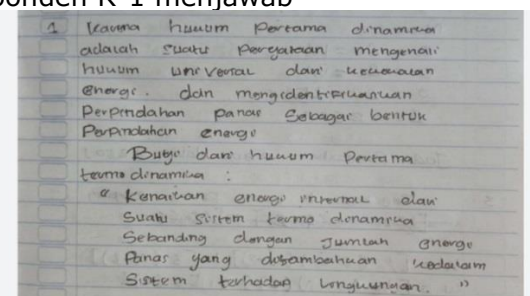 ponden K-1 menjawab
1 Karena hukum pertama dinamika
adalah suatu pernyataan mengenai
hukum universal dari kekekalan
energi. dan mengidentifikasikan
Perpindahan panas sebagai bentuk
Perpindahan energi
Bunyi dari hukum Pertama
termodinamika :
" Kenaikan energi internal dari
Suatu sistem termo dinamika
Sebanding dengan Jumlah energi
Panas yang ditambahkan kedalam
Sistem terhadap lingkungan. "